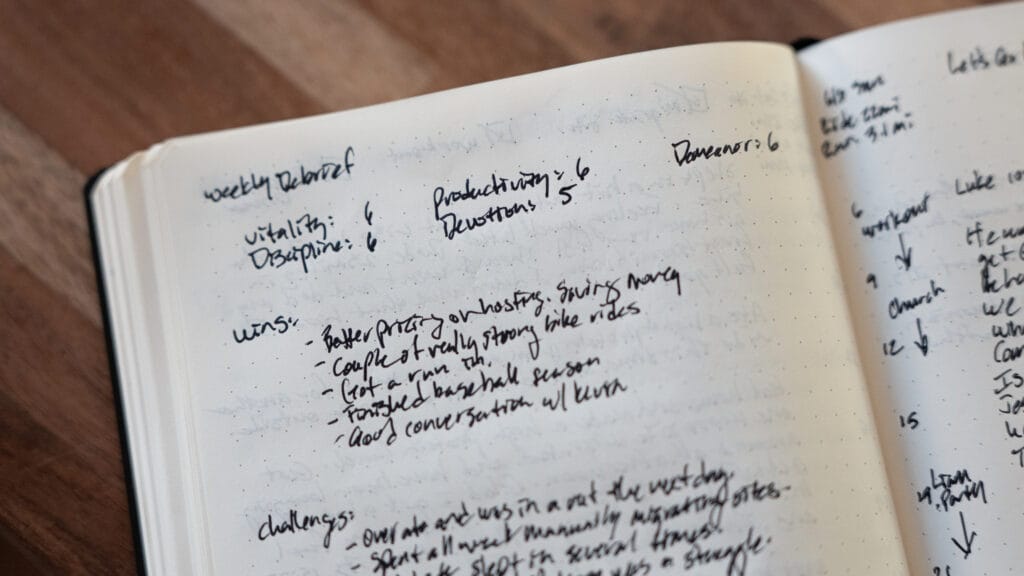 Weekly Debrief
Vitality: 6
Discipline: 6
Productivity: 6
Devotions: 5
Demeanor: 6
Wins:
- Better pricing on hosting. Saving money
- Couple of really strong bike rides
- Got a run in
- Finished baseball season
- Good conversation w/ Kevin
Challenges:
- Over ate and was in a rut the next day.
- Spent all week manually migrating sites-
slept in several times.
was a struggle.
Let's Go
Run 3.1 mi
Luke
6
workout
9
church
12
15
Party
get
We